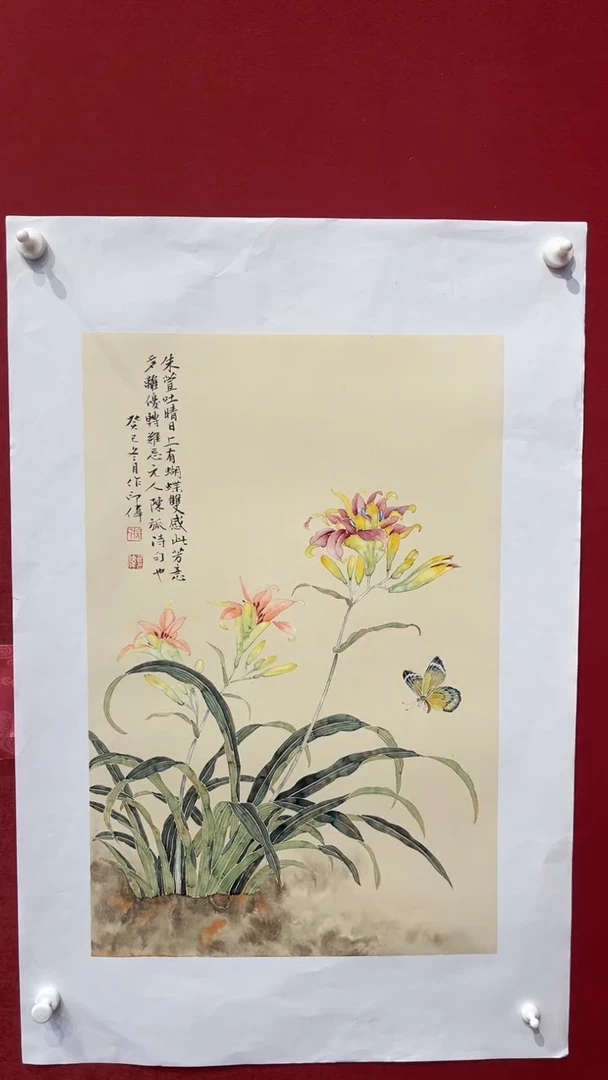 朱萱吐晴日上有蝴蝶雙感此芳意
多離優轉難忘元人陳旅詩句也
癸巳冬月作 偉